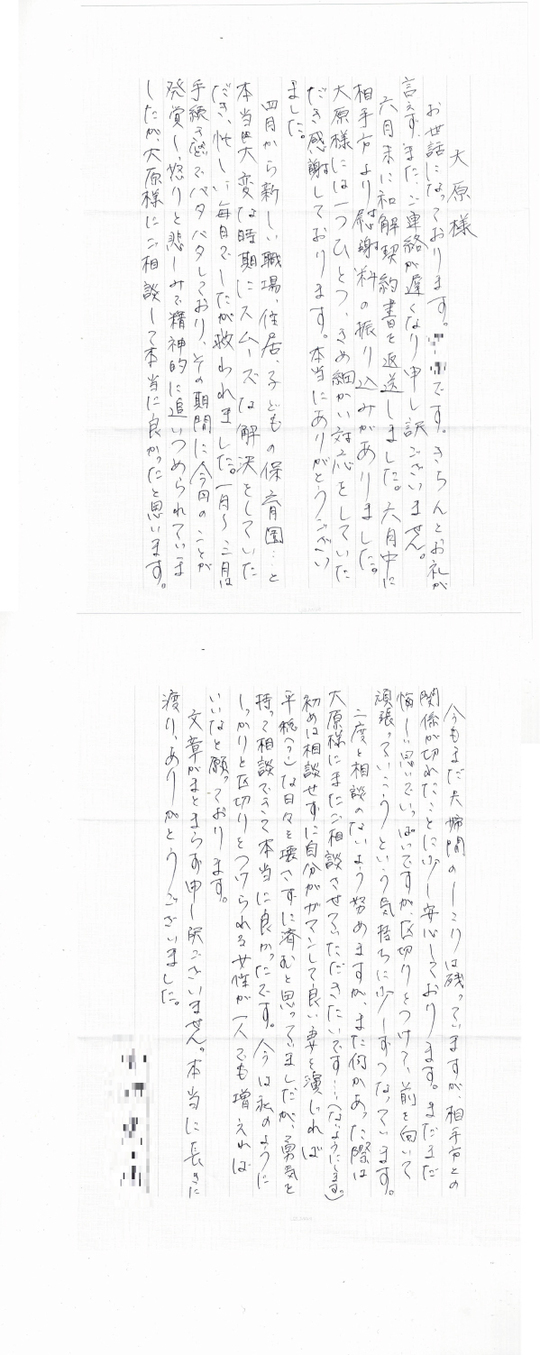 大原様
お世話になっております。です。きちんとお礼が
言えず、また、ご連絡が遅くなり申し訳ございません。
六月末に和解契約書を返送しました。六月中に
相手方より慰謝料の振り込みがありました。
大原様には一つひとつ、きめ細かい対応をしていた
だき感謝しております。本当にありがとうござい
ました。
四月から新しい職場、住居、子どもの保育園…と
本当に大変な時期にスムーズな解決をしていた
だき、忙しい毎日でしたが救われました。一月〜三月は
手続き等でバタバタしており、その期間に今回のことが
発覚し、怒りと悲しみで精神的に追いつめられていま
したが、大原様にご相談して本当に良かったと思います。
今もまだ夫婦間のしこりは残っていますが、相手方との
関係が切れたことに少し安心しております。まだまだ
悔しい思いでいっぱいですが、区切りをつけて、前を向いて
頑張っていこうという気持ちに少しずつなっています。
二度と相談のないよう努めますが、また何かあった際は
大原様にまたご相談させていただきたいです…(ないようにします。)
初めは相談せずに自分がガマンして良い妻を演じれば
平穏(?)な日々を壊さずに済むと思っていましたが、勇気を
持って相談できて本当に良かったです。今は私のように
しっかりと区切りをつけられる女性が一人でも増えれば
いいなと願っております。
文章がまとまらず申し訳ございません。本当に長きに
渡り、ありがとうございました。